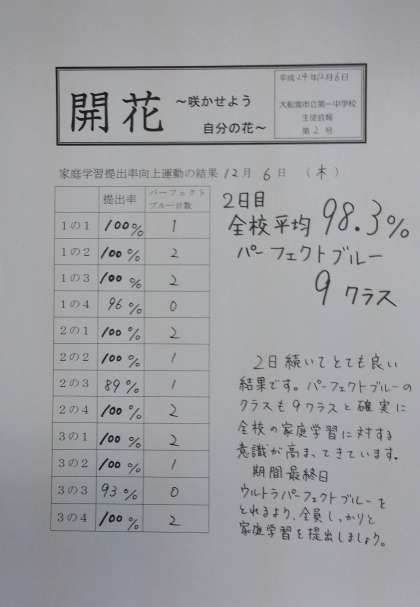 開花
～咲かせよう
自分の花～
平成24年12月6日
大船渡市立第一中学校
生徒会報
第2号
家庭学習提出率向上運動の結果 12月 6日 (木)
提出率 パーフェクトブルー日数
1の1 100% 1
1の2 100% 2
1の3 100% 2
1の4 96% 0
2の1 100% 2
2の2 100% 1
2の3 89% 1
2の4 100% 2
3の1 100% 2
3の2 100% 1
3の3 93% 0
3の4 100% 2
2日目
全校平均 98.3%
パーフェクトブルー
9クラス
2日続いてとても良い
結果です。パーフェクトブルーの
クラスも9クラスと確実に
全校の家庭学習に対する
意識が高まってきています。
期間最終日
ウルトラパーフェクトブルーを
とれるよう、全員しっかりと
家庭学習を提出しましょう。